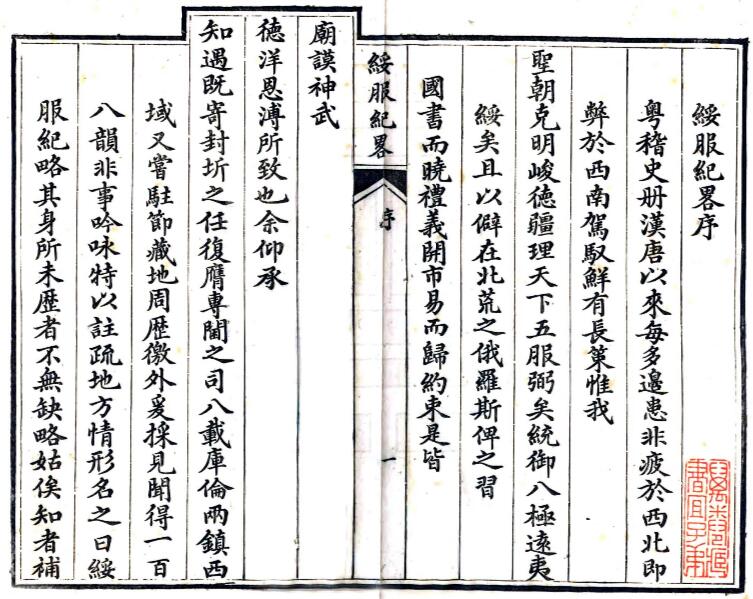 綏服紀畧序
粵稽史册漢唐以來每多邊患非疲於西北即
弊於西南駕馭鮮有長策惟我
聖朝克明峻德疆理天下五服弼矣統御八極遠夷
綏矣且以僻在北荒之俄羅斯俾之習
國書而曉禮義開市易而歸約束是皆
綏服紀畧
序
一
廟謨神武
德洋恩溥所致也余仰承
知遇既寄封圻之任復膺專閫之司八載庫倫兩鎮西
域又嘗駐節藏地周歷徼外爰採見聞得一百
八韻非事吟咏特以註疏地方情形名之曰綏
服紀略其身所未歷者不無缺略姑俟知者補